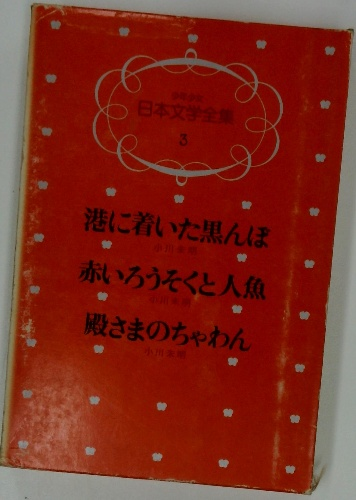 日本文学全集
3
港に着いた黒んぼ
小川未明
赤いろうそくと人魚
小川未明
殿さまのちゃわん
小川未明